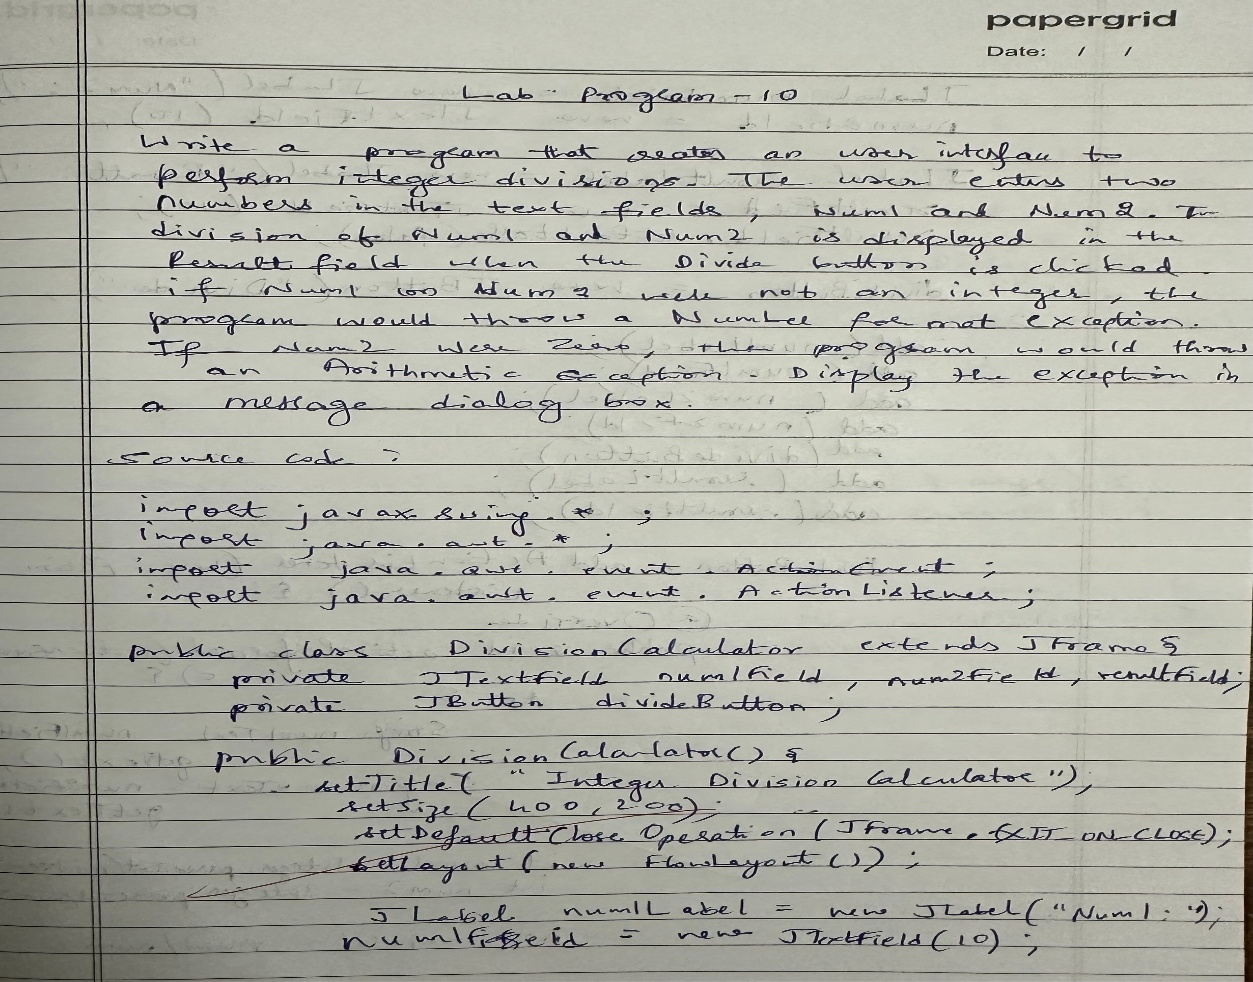 papergrid
Date: / /
Lab Program - 10
Write a program that creates an user interface to
perform integer divisions. The user enters two
numbers in the text fields, Num1 and Num2. The
division of Num1 and Num2 is displayed in the
Result field when the Divide button is clicked.
if Num1 or Num2 were not an integer, the
program would throw a Number format exception.
If Num2 were Zero, the program would throw
an Arithmetic exception. Display the exception in
a message dialog box.
Source code :
import javax.swing.* ;
import java.awt.* ;
import java.awt.event.ActionEvent ;
import java.awt.event.ActionListener ;
public class DivisionCalculator extends JFrame {
private JTextfield num1field, num2field, resultfield;
private JButton divideButton ;
public DivisionCalculator() {
setTitle( "Integer Division Calculator");
setSize (400, 200);
setDefaultCloseOperation (JFrame.EXIT_ON_CLOSE);
setLayout (new FlowLayout ()) ;
JLabel num1Label = new JLabel("Num1: ");
num1field = new JTextField(10) ;